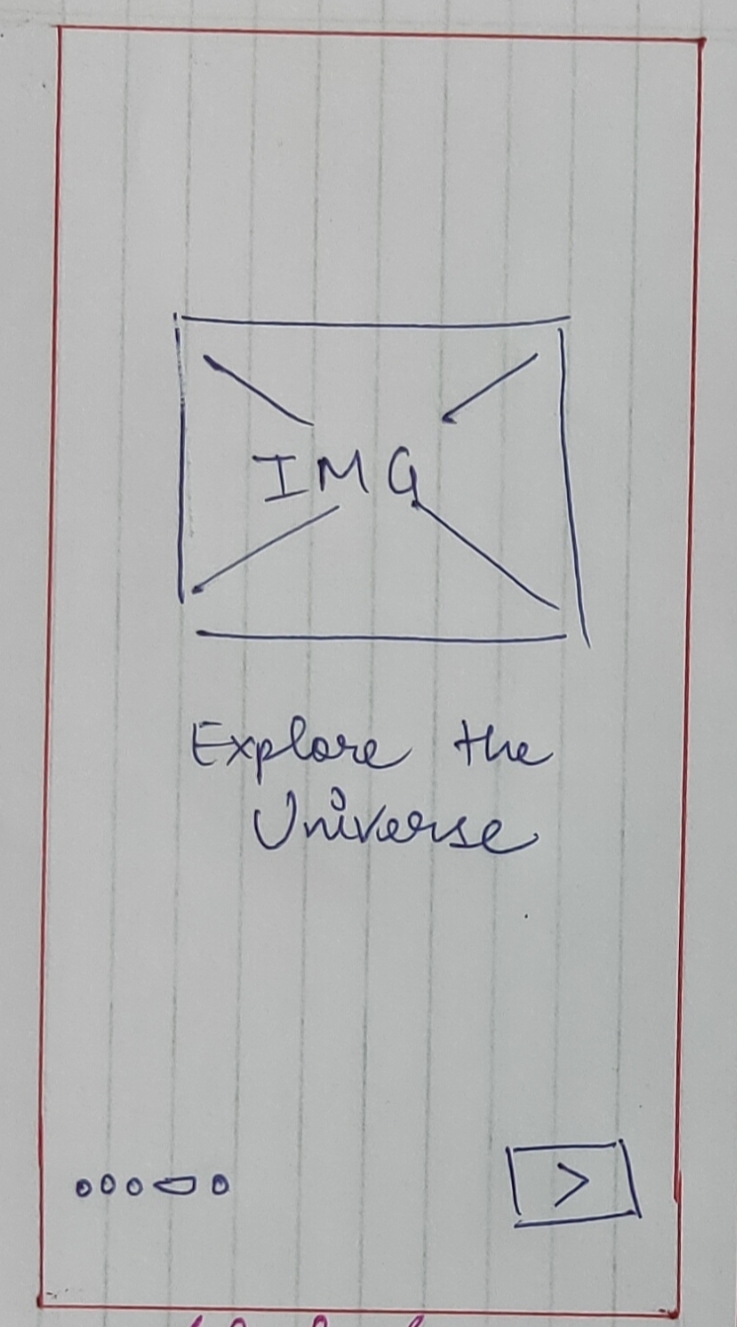 IMG
Explore the
Universe
>